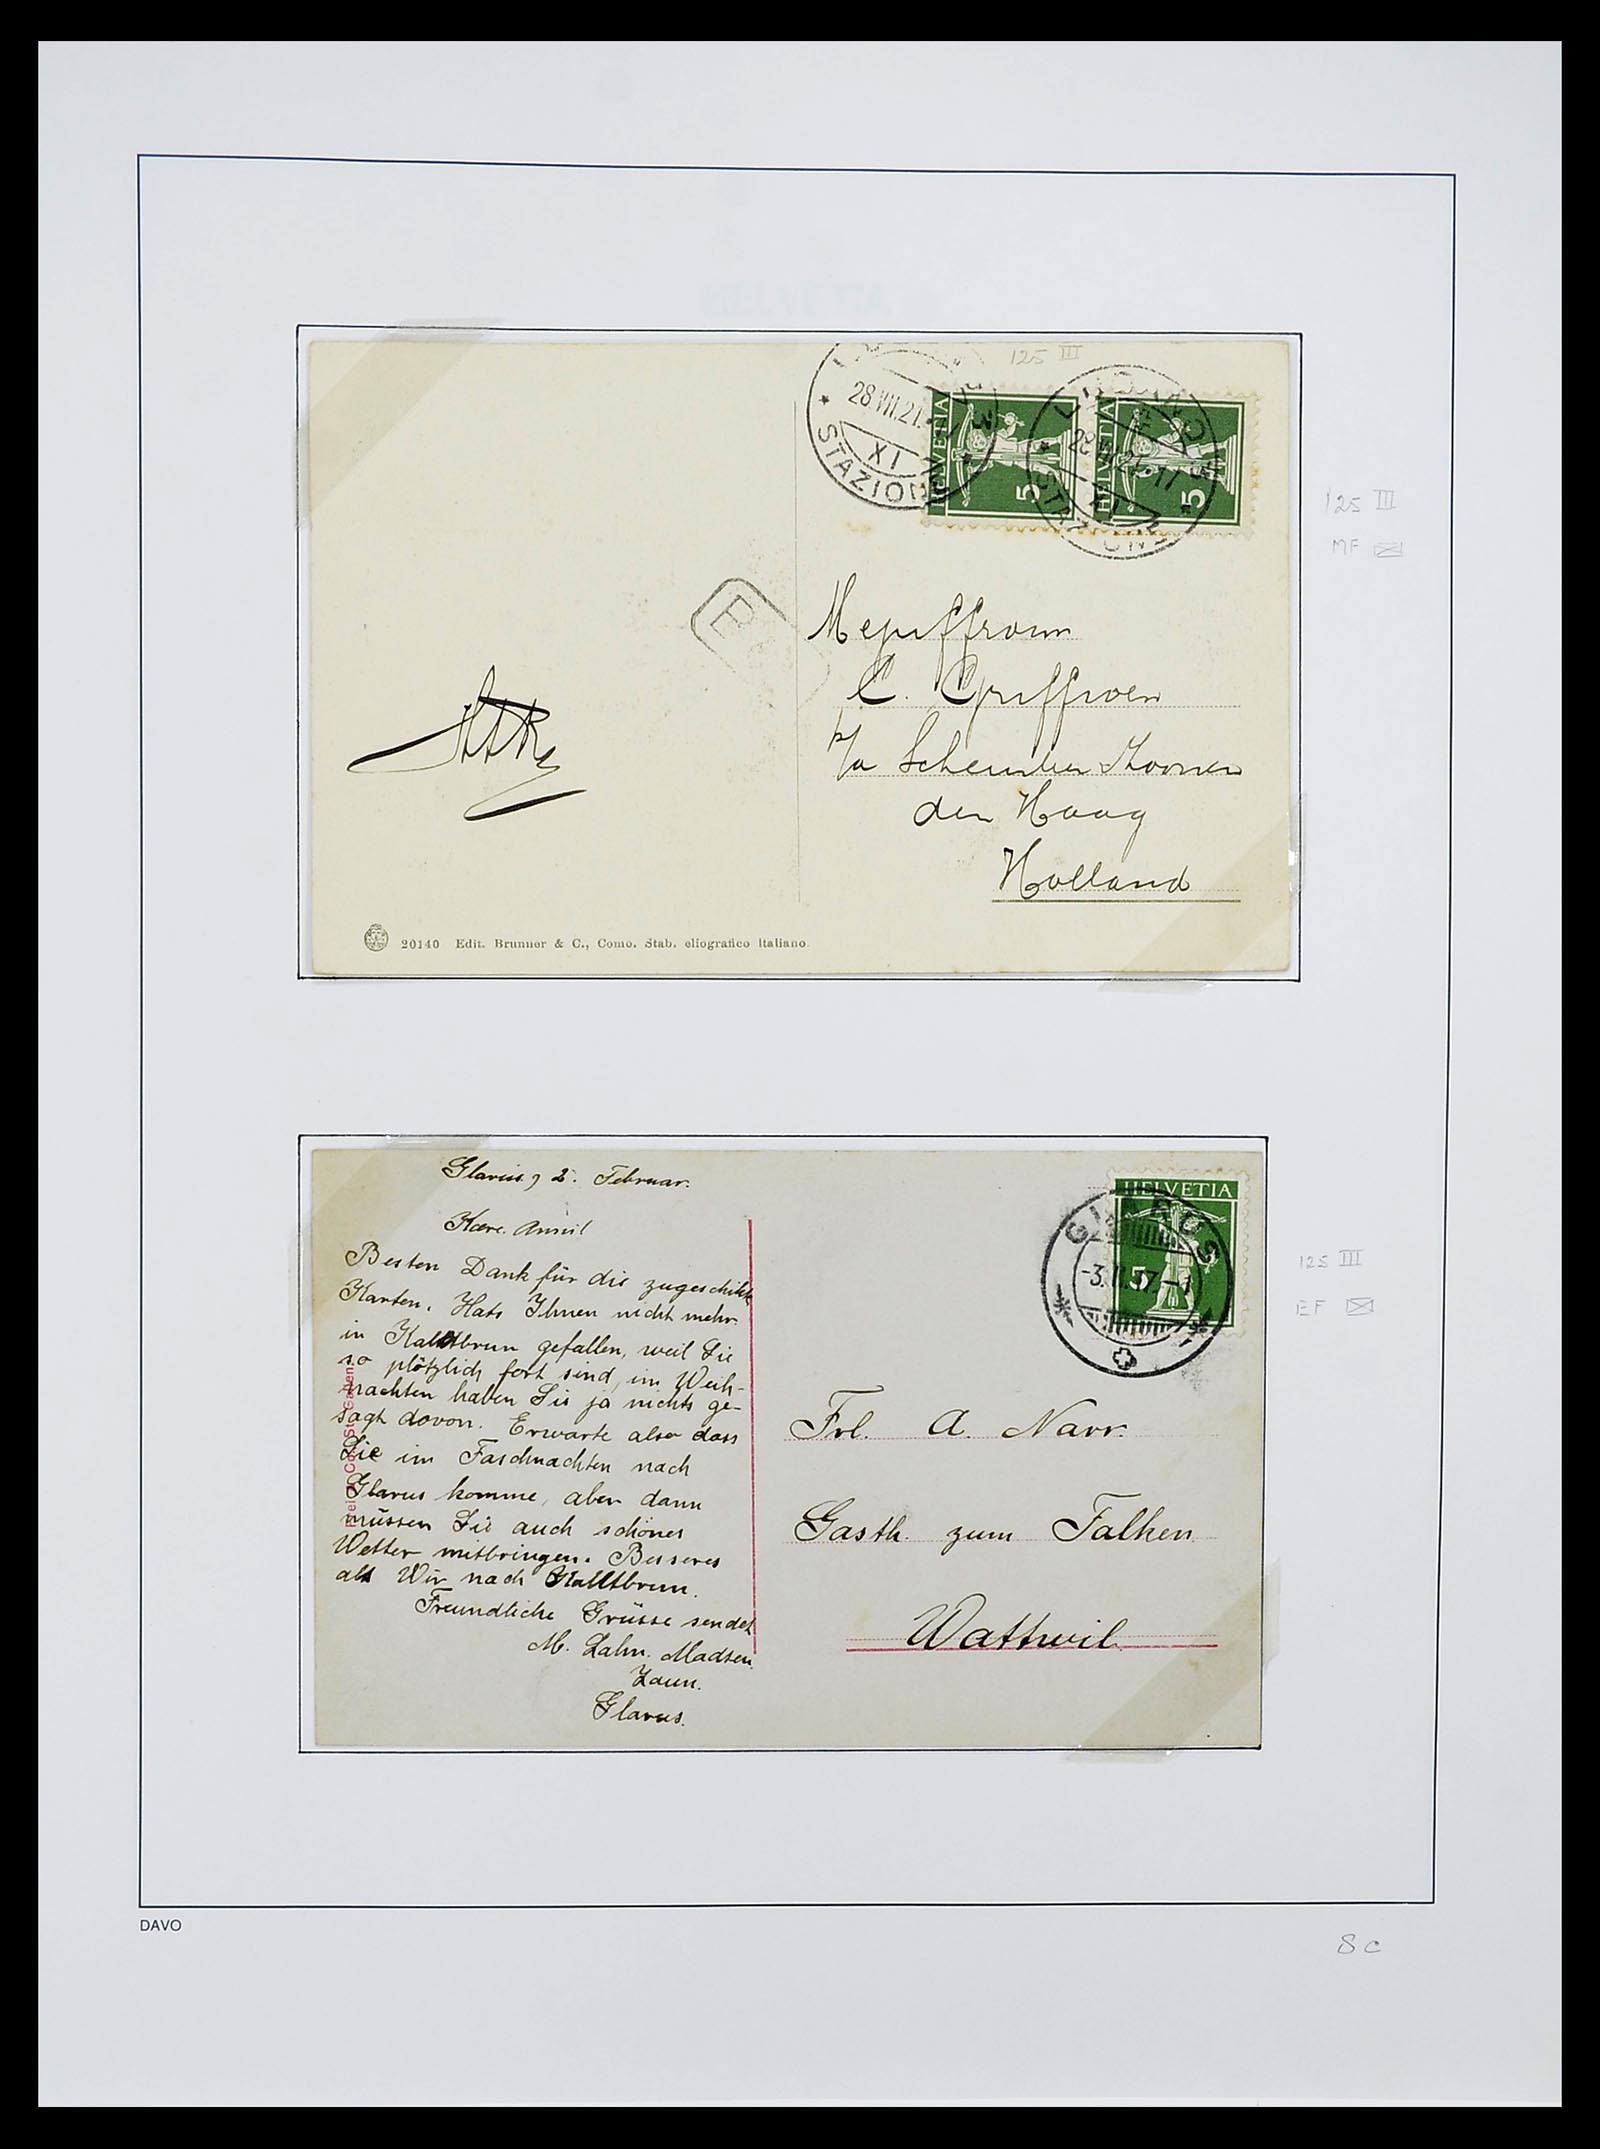 HELVETIA
125 III
28.VII.21.-17
XI
STAZIONE
HELVETIA
5
HELVETIA
5
28.VII.21.-17
XI
STAZIONE
125 III
MF
Mejuffrouw
C. Griffioen
p/a
den Haag
Holland
20140 Edit. Brunner & C., Como. Stab. eliografico italiano
Glarus, 2. Februar.
Besten Dank für die zugeschikte
Karten. Hats Ihnen nicht mehr
in Kaltbrun gefallen, weil Sie
so plötzlich fort sind, im Weih-
nachten haben Sie ja nichts ge-
sagt davon. Erwarte also dass
Sie im Faschnachten nach
Glarus komme, aber dann
müssen Sie auch schönes
Wetter mitbringen. Besseres
als Wir nach Kaltbrun.
Freundliche Grüsse sendet
M. Madsen
Zaun.
Glarus.
HELVETIA
5
GLARUS
-3.II.37.-1
125 III
EF
Frl. A. Narr.
Gasth. zum Falken
Wattwil
DAVO
8c